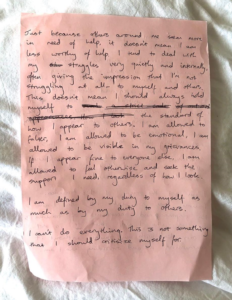 Just because others around me seem more
in need of help, it doesn't mean I am
less worthy of help. I tend to deal with
my struggles very quietly and internally,
often giving the impression that I'm not
struggling at all to myself and others.
This doesn't mean I should always hold
myself
the standard of
how I appear to others. I am allowed to
falter. I am allowed to be emotional. I am
allowed to be visible in my grievances.
If I appear fine to everyone else I am
allowed to feel otherwise and seek the
support I need, regardless of how I look.
I am defined by my duty to myself as
much as by my duty to others.
I can't do everything. This is not something
that I should criticise myself for.